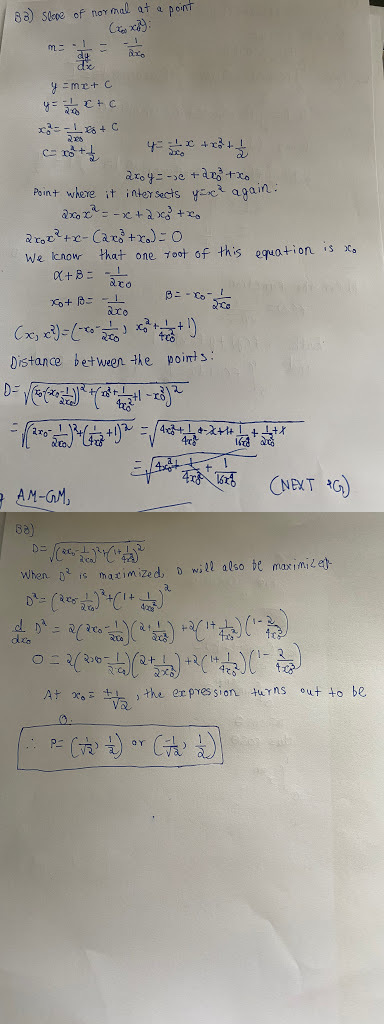 38) Slope of normal at a point
(x₀, x₀²):
m = -1/(dy/dx) = -1/2x₀
y = mx + c
y = -1/2x₀ x + c
x₀² = -1/2x₀ x₀ + c
c = x₀² + 1/2 y = -1/2x₀ x + x₀² + 1/2
2x₀y = -x + 2x₀³ + x₀
Point where it intersects y=x² again:
2x₀x² = -x + 2x₀³ + x₀
2x₀x² + x - (2x₀³ + x₀) = 0
We know that one root of this equation is x₀
α + β = -1/2x₀
x₀ + β = -1/2x₀ β = -x₀ - 1/2x₀
(x, x²) = (-x₀ - 1/2x₀, x₀² + 1/4x₀² + 1)
Distance between the points:
D = √((x₀-(-x₀-1/2x₀))² + (x₀² + 1/4x₀² + 1 - x₀²)²)
= √((2x₀ - 1/2x₀)² + (1/4x₀² + 1)²) = √(4x₀² + 1/4x₀² - 2 + 1 + 1/16x₀⁴ + 1/2x₀²
= √(4x₀² + 1/4x₀² + 1/16x₀⁴
AM-GM, (NEXT PG)
38)
D = √((2x₀ - 1/2x₀)² + (1 + 1/4x₀²)²)
When D² is maximized, D will also be maximized.
D² = (2x₀ - 1/2x₀)² + (1 + 1/4x₀²)²
d/dx₀ D² = 2(2x₀ - 1/2x₀)(2 + 1/2x₀²) + 2(1 + 1/4x₀²)(1 - 2/4x₀³)
0 = 2(2x₀ - 1/2x₀)(2 + 1/2x₀²) + 2(1 + 1/4x₀²)(1 - 2/4x₀³)
At x₀ = ±1/√2, the expression turns out to be
0.
∴ P = (1/√2, 1/2) or (-1/√2, 1/2)